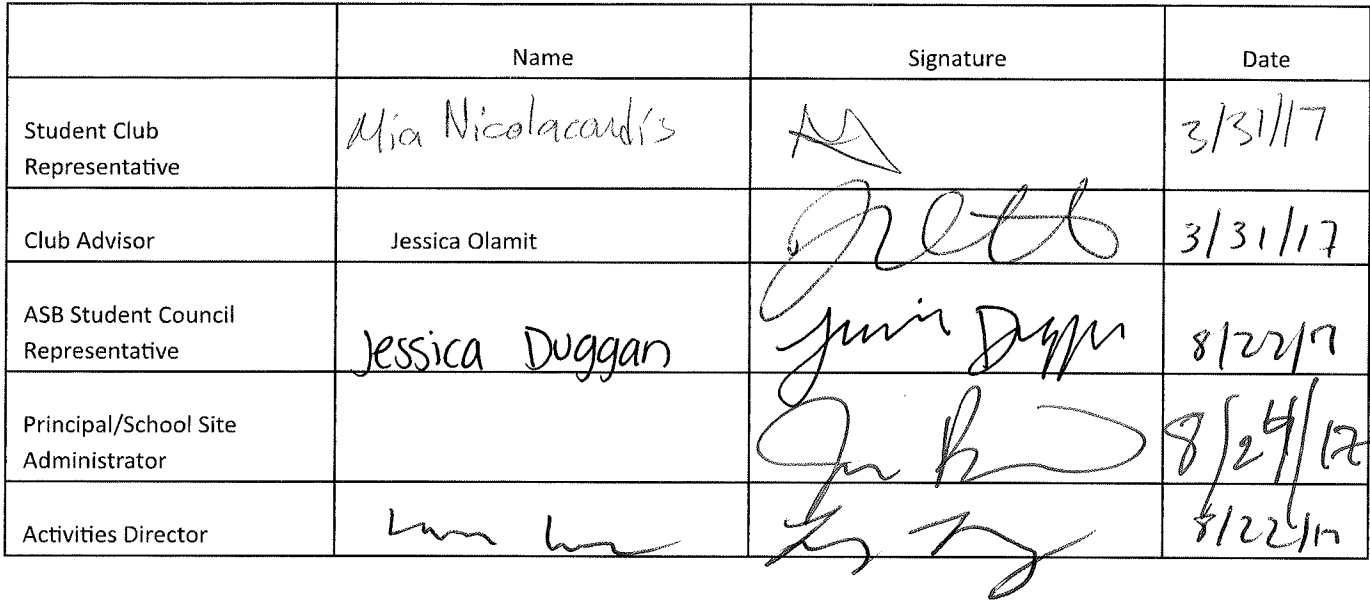 Name Signature Date
Student Club
Representative
Mia Nicolacoudis 3/31/17
Club Advisor Jessica Olamit 3/31/17
ASB Student Council
Representative
Jessica Duggan Duggan 8/22/17
Principal/School Site
Administrator
8/24/17
Activities Director 8/22/17